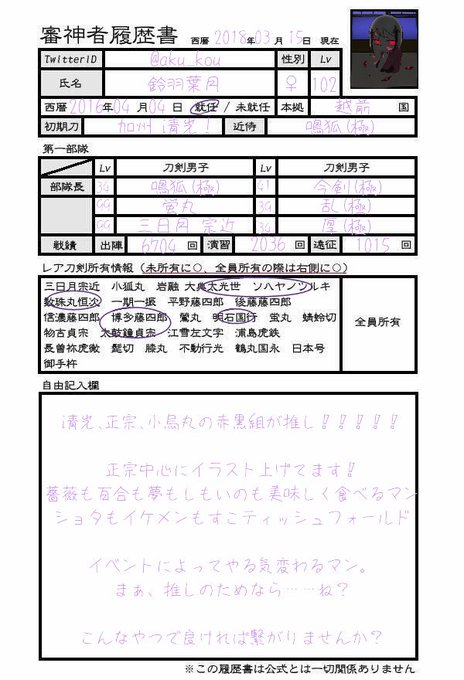 審神者履歴書 西暦 2018年 03月 15日 現在
TwitterID @aku_kou 性別 Lv
氏名 鈴羽葉月 ♀ 102
西暦 2016年 04月 04日 就任 / 未就任 本拠 越前 国
初期刀 加州 清光! 近侍 鳴狐(極)
第一部隊
Lv 刀剣男子 Lv 刀剣男子
部隊長 34 鳴狐(極) 41 今剣(極)
99 蛍丸 39 乱(極)
99 三日月 宗近 39 厚(極)
戦績 出陣 6704 回 演習 2036 回 遠征 1015 回
レア刀剣所有情報 (未所有に○、全員所有の際は右側に○)
三日月宗近 小狐丸 岩融 大典太光世 ソハヤノツルキ
数珠丸恒次 一期一振 平野藤四郎 後藤藤四郎
信濃藤四郎 博多藤四郎 鶯丸 明石国行 蛍丸 蜻蛉切
物吉貞宗 太鼓鐘貞宗 江雪左文字 浦島虎鉄
長曽祢虎徹 髭切 膝丸 不動行光 鶴丸国永 日本号
御手杵
全員所有
自由記入欄
清光、正宗、小烏丸の赤黒組が推し!!!!!
正宗中心にイラスト上げてます!
薔薇も百合も夢もしもいのも美味しく食べるマン
ショタもイケメンもすこティッシュフォールド
イベントによってやる気変わるマン。
まぁ、推しのためなら……ね?
こんなやつで良ければ繋がりませんか?
※この履歴書は公式とは一切関係ありません